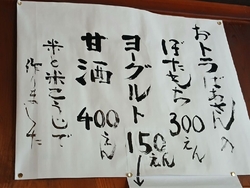 おトラばあさんの
ぼたもち300えん
ヨーグルト150えん
甘酒400えん
米と米こうじで
作りました